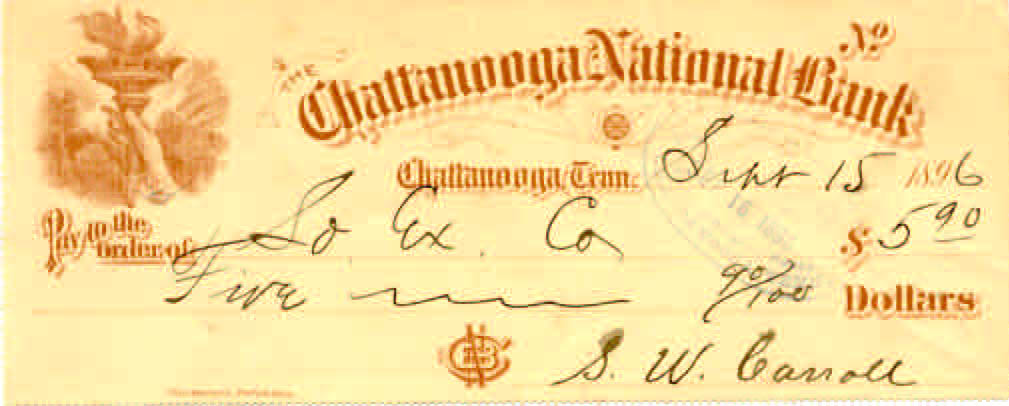 No
THE Chattanooga National Bank
Chattanooga, Tenn. Sept 15 1896
Pay to the order of So Ex. Co $ 5 90
Five 90/100 Dollars
S. W. Carroll